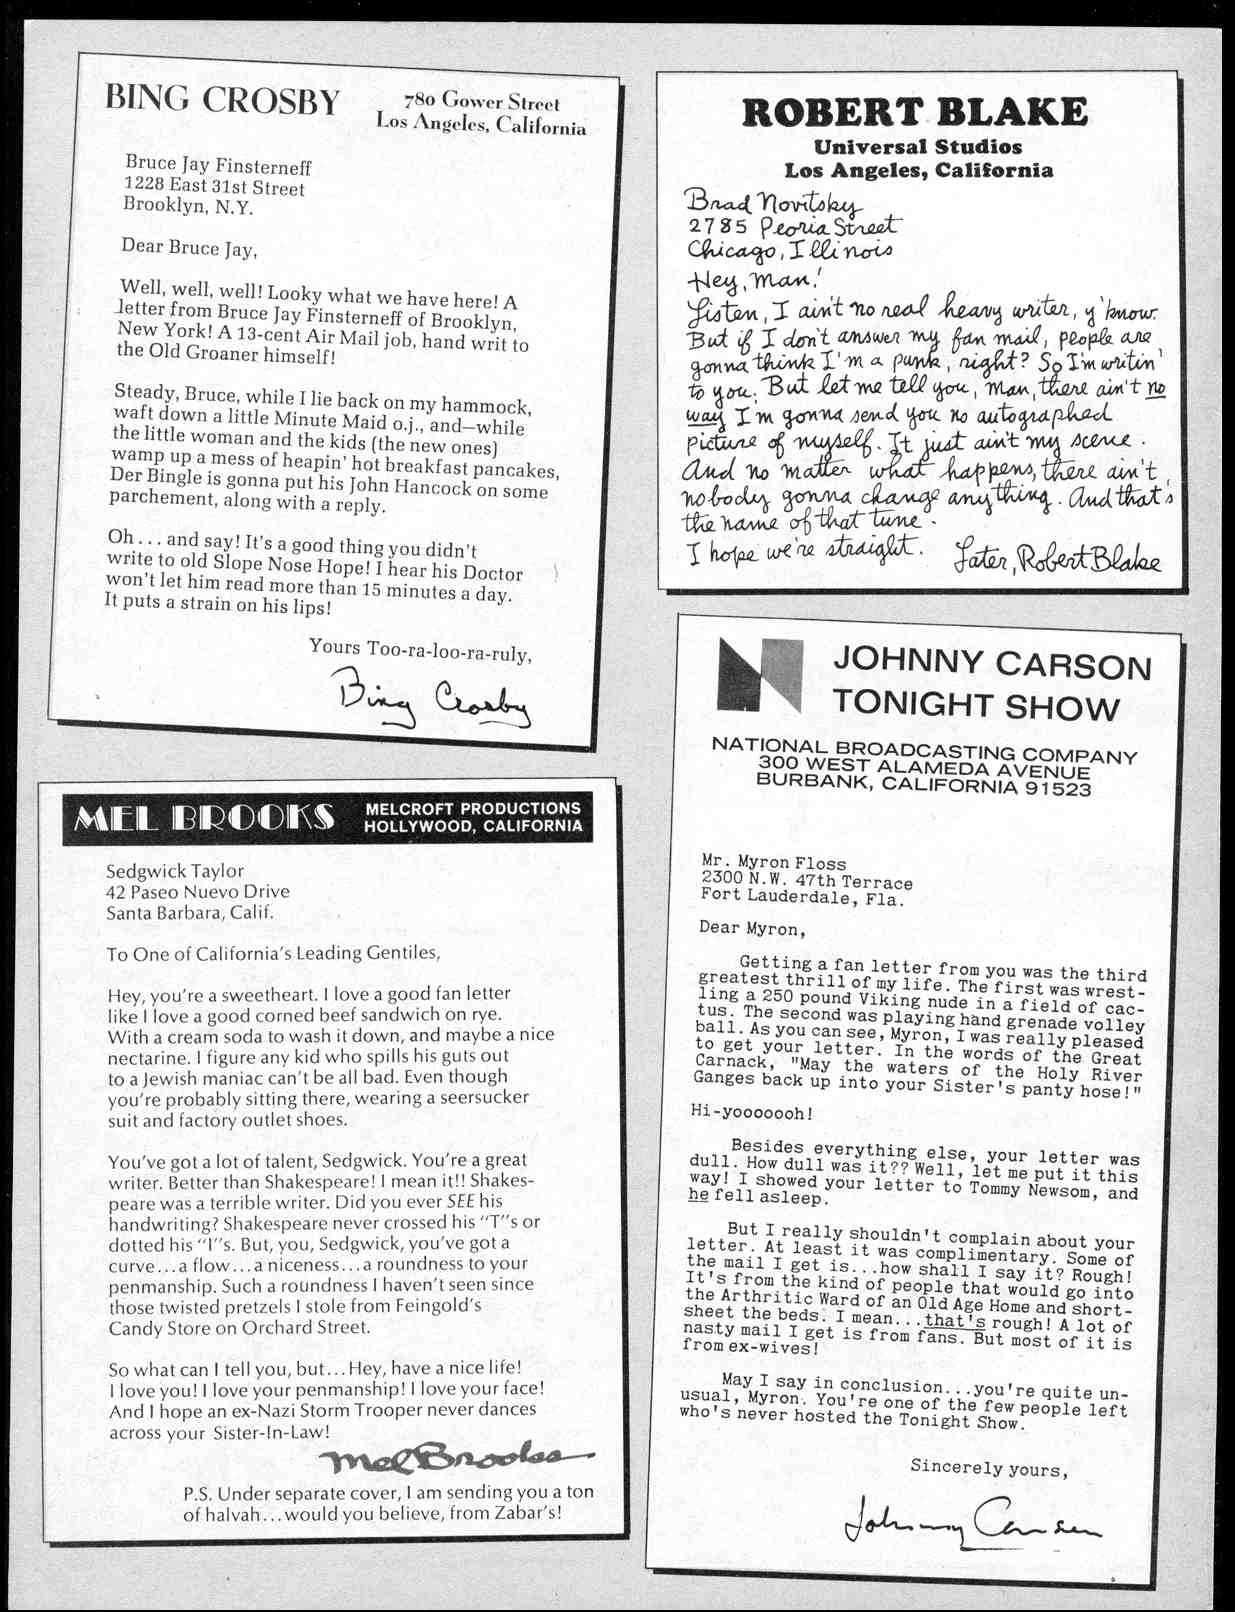 BING CROSBY
780 Gower Street
Los Angeles, California
Bruce Jay Finsterneff
1228 East 31st Street
Brooklyn, N.Y.
Dear Bruce Jay,
Well, well, well! Looky what we have here! A
letter from Bruce Jay Finsterneff of Brooklyn,
New York! A 13-cent Air Mail job, hand writ to
the Old Groaner himself!
Steady, Bruce, while I lie back on my hammock,
waft down a little Minute Maid o.j., and—while
the little woman and the kids (the new ones)
wamp up a mess of heapin' hot breakfast pancakes,
Der Bingle is gonna put his John Hancock on some
parchement, along with a reply.
Oh . . . and say! It's a good thing you didn't
write to old Slope Nose Hope! I hear his Doctor
won't let him read more than 15 minutes a day.
It puts a strain on his lips!
Yours Too-ra-loo-ra-ruly,
Bing Crosby
ROBERT BLAKE
Universal Studios
Los Angeles, California
Brad Novitsky
2785 Peoria Street
Chicago, Illinois
Hey, Man!
Listen, I ain't no real heavy writer, y'know.
But if I don't answer my fan mail, people are
gonna think I'm a punk, right? So I'm writin'
to you. But let me tell you, man, there ain't no
way I'm gonna send you no autographed
picture of myself. It just ain't my scene.
And no matter what happens, there ain't
nobody gonna change anything. And that's
the name of that tune.
I hope we're straight.
Later, Robert Blake
MEL BROOKS
MELCROFT PRODUCTIONS
HOLLYWOOD, CALIFORNIA
Sedgwick Taylor
42 Paseo Nuevo Drive
Santa Barbara, Calif.
To One of California's Leading Gentiles,
Hey, you're a sweetheart. I love a good fan letter
like I love a good corned beef sandwich on rye.
With a cream soda to wash it down, and maybe a nice
nectarine. I figure any kid who spills his guts out
to a Jewish maniac can't be all bad. Even though
you're probably sitting there, wearing a seersucker
suit and factory outlet shoes.
You've got a lot of talent, Sedgwick. You're a great
writer. Better than Shakespeare! I mean it!! Shakes-
peare was a terrible writer. Did you ever SEE his
handwriting? Shakespeare never crossed his "T"s or
dotted his "I"s. But, you, Sedgwick, you've got a
curve...a flow...a niceness...a roundness to your
penmanship. Such a roundness I haven't seen since
those twisted pretzels I stole from Feingold's
Candy Store on Orchard Street.
So what can I tell you, but...Hey, have a nice life!
I love you! I love your penmanship! I love your face!
And I hope an ex-Nazi Storm Trooper never dances
across your Sister-In-Law!
Mel Brooks
P.S. Under separate cover, I am sending you a ton
of halvah...would you believe, from Zabar's!
JOHNNY CARSON
TONIGHT SHOW
NATIONAL BROADCASTING COMPANY
300 WEST ALAMEDA AVENUE
BURBANK, CALIFORNIA 91523
Mr. Myron Floss
2300 N.W. 47th Terrace
Fort Lauderdale, Fla.
Dear Myron,
Getting a fan letter from you was the third
greatest thrill of my life. The first was wrest-
ling a 250 pound Viking nude in a field of cac-
tus. The second was playing hand grenade volley
ball. As you can see, Myron, I was really pleased
to get your letter. In the words of the Great
Carnack, "May the waters of the Holy River
Ganges back up into your Sister's panty hose!"
Hi-yooooooh!
Besides everything else, your letter was
dull. How dull was it?? Well, let me put it this
way! I showed your letter to Tommy Newsom, and
he fell asleep.
But I really shouldn't complain about your
letter. At least it was complimentary. Some of
the mail I get is...how shall I say it? Rough!
It's from the kind of people that would go into
the Arthritic Ward of an Old Age Home and short-
sheet the beds. I mean...that's rough! A lot of
nasty mail I get is from fans. But most of it is
from ex-wives!
May I say in conclusion...you're quite un-
usual, Myron. You're one of the few people left
who's never hosted the Tonight Show.
Sincerely yours,
Johnny Carson